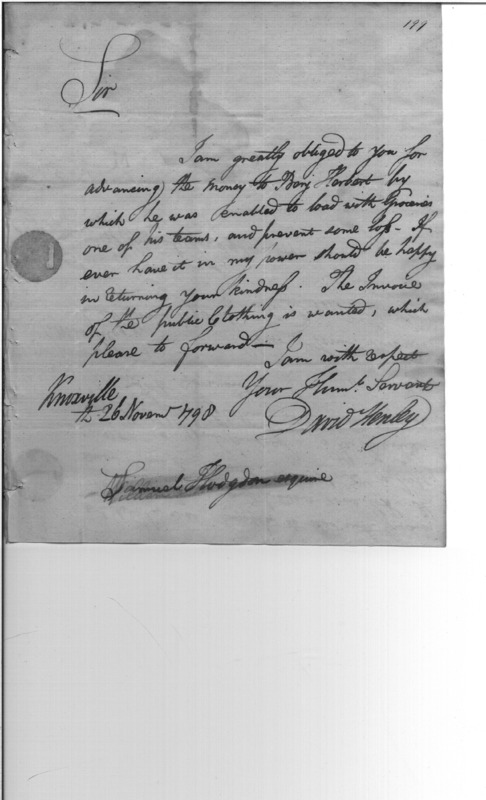 199
Sir
I am greatly obliged to you for
advancing the money to Benj Harbert by
which he was enabled to load with Groceries
one of his teams, and prevent some loss - If
ever have it in my power should be happy
in returning your kindness. The Invoice
of the public Clothing is wanted, which
please to forward -
I am with respect
Your Humb. Servant
Knoxville
26 Novemr 1798
David Henley
Samuel Hodgdon esquire